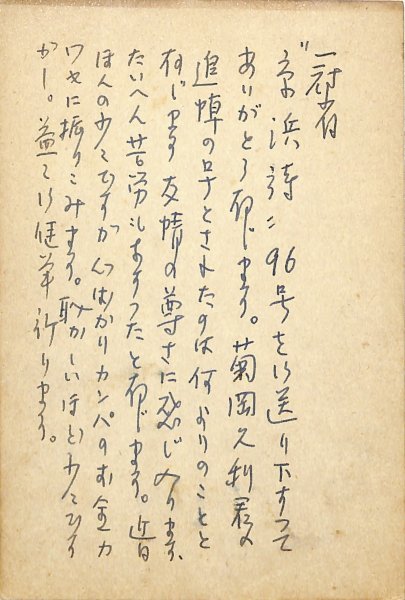 冠省
"京浜詩" 96号を御送り下すって
ありがとう存じます。菊岡久利君の
追悼の号とされたのは何よりのことと
存じます 友情の尊さに感じ入ります。
たいへん苦労もあすったと存じます。近日
ほんの少々ですが心ばかりカンパのお金カ
ワセに振りこみます。恥かしいほど少々です
が―。益々御健筆祈ります。